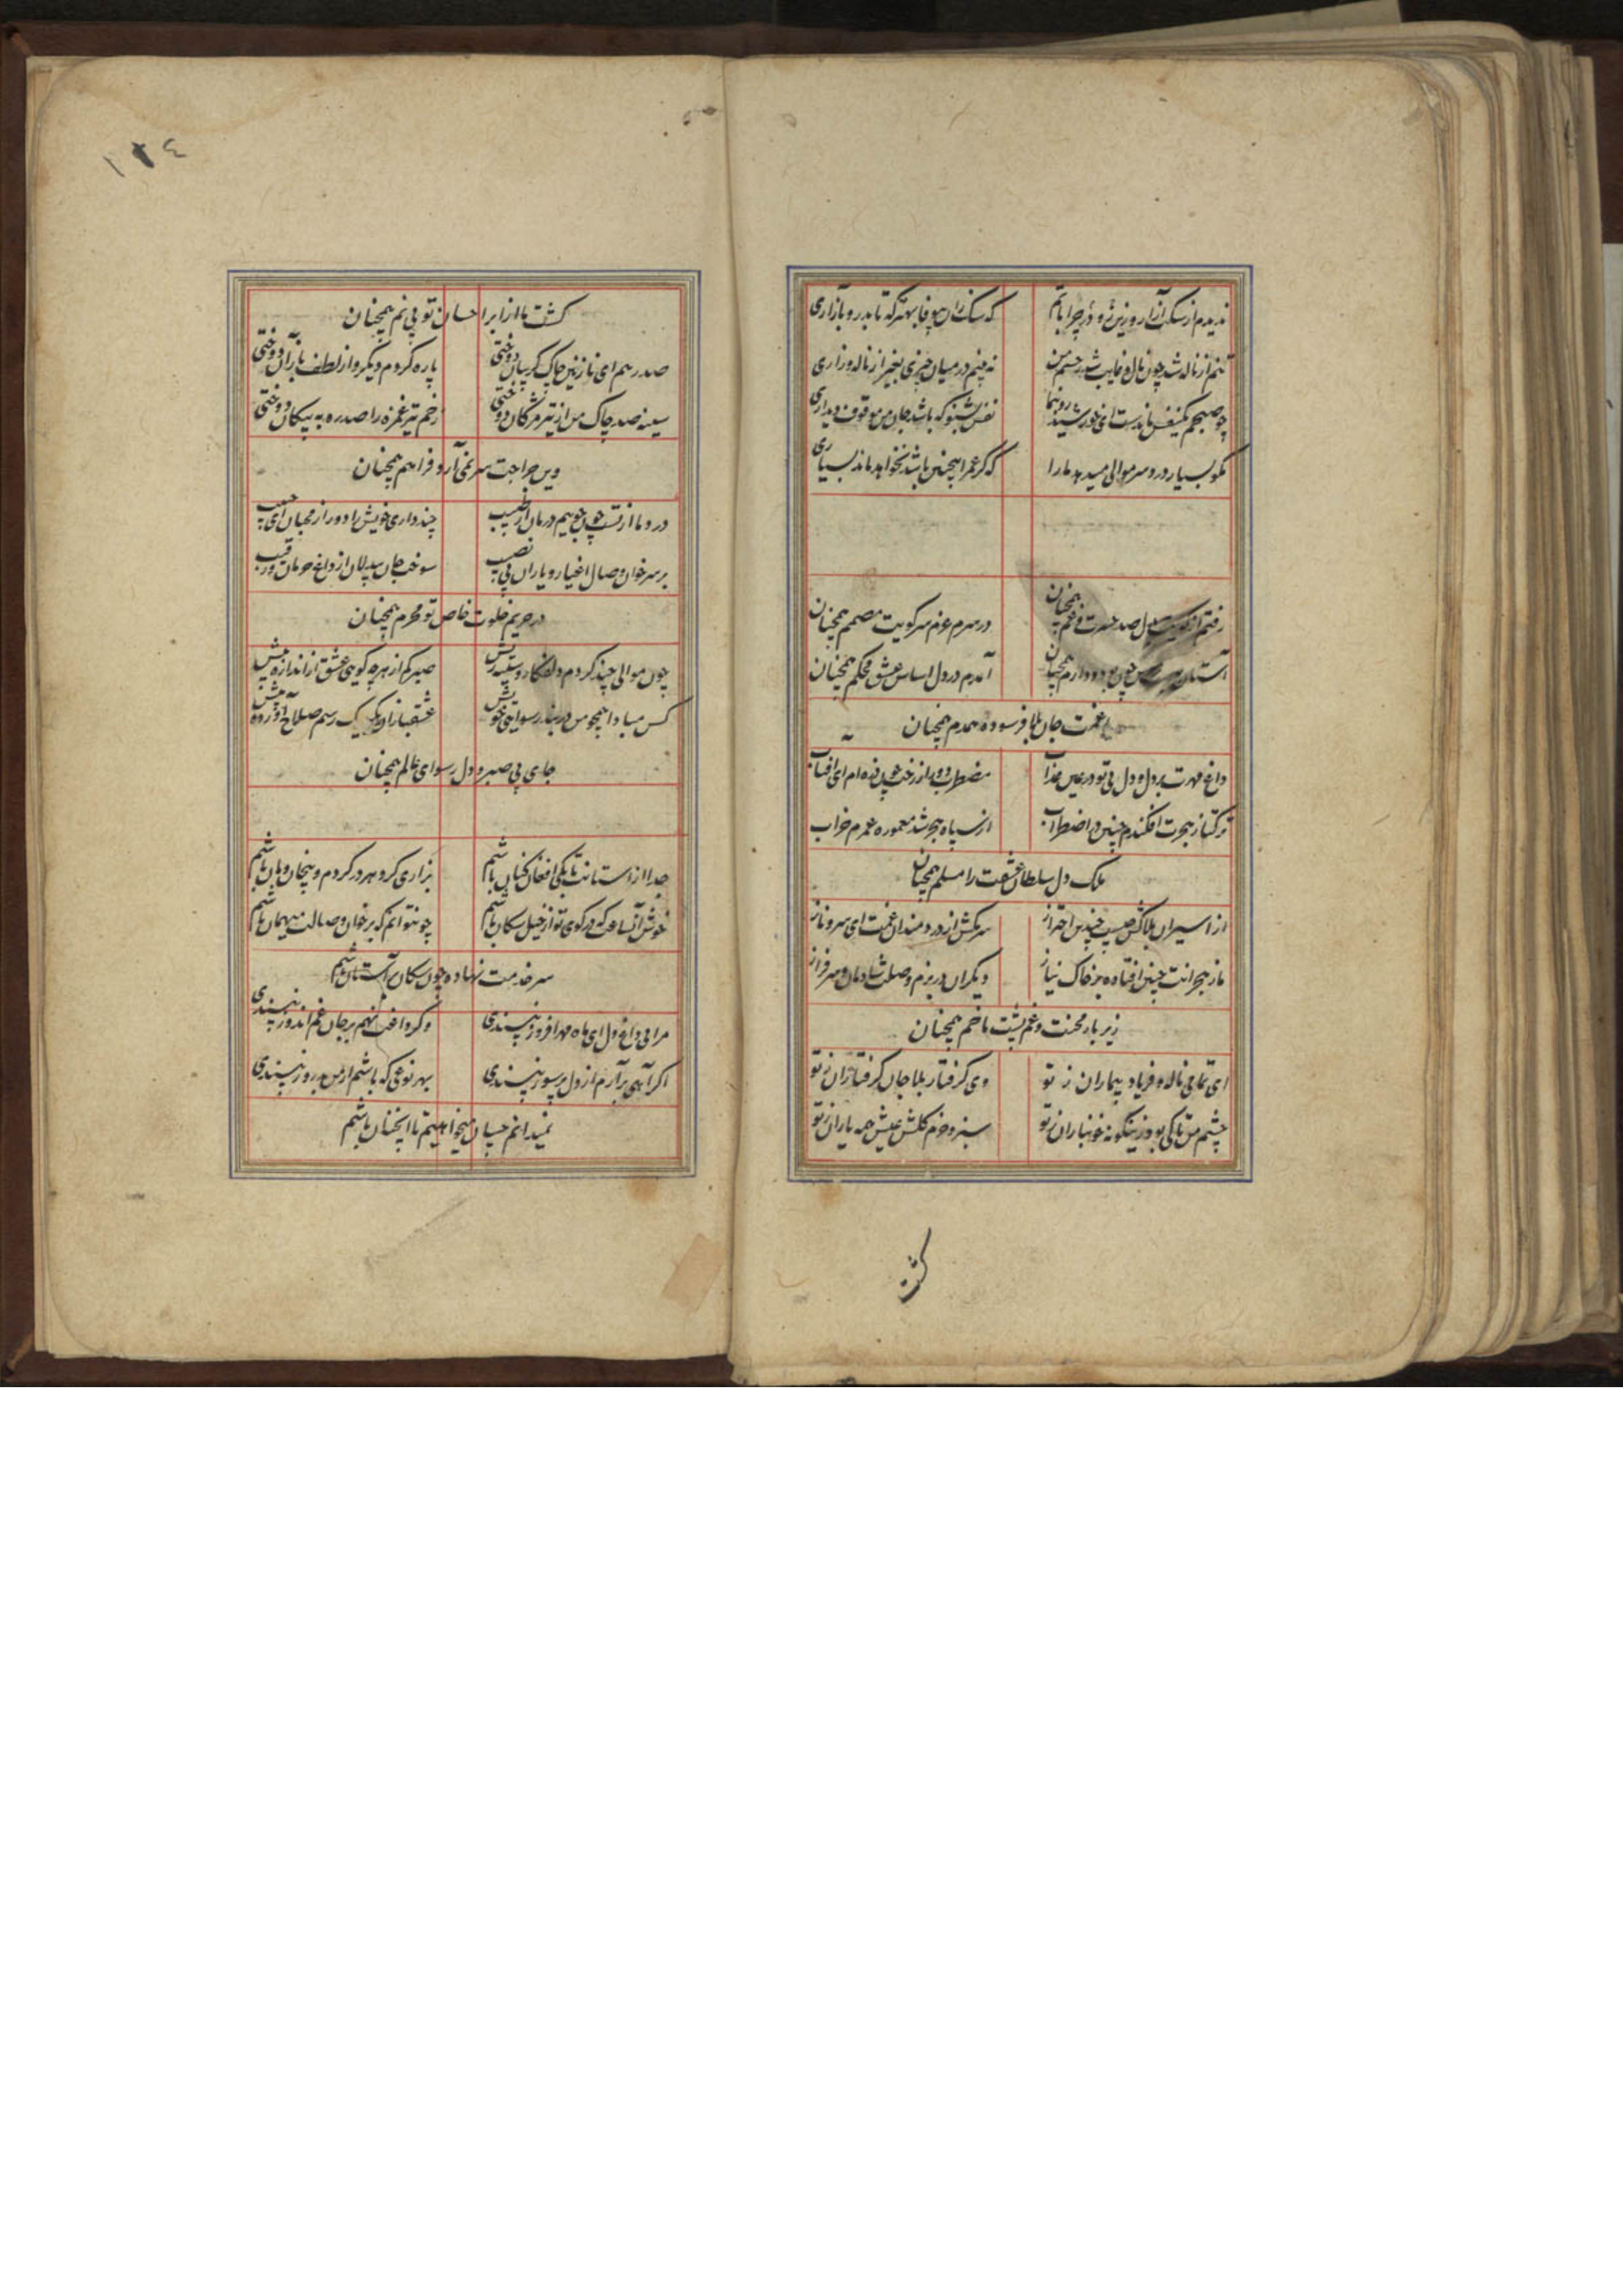 ندیدم از سکت آزار روزین رو در چرا باتم
که سک زان بیوفا بهتر که تا بدر و بازاری
تنم از ناله شد چون نال و غایب شد ز چشم من
نه بینم در میان چیزی بغیر از ناله و زاری
چو صبحم یکنفس ماندست ای خورشید رو بنما
نفس نشنو که باشد جان من موقوف دیداری
مکو بسیار درد سر موالی میدهد ما را
که کر عمر اینچنین باشد نخواهد ماند بسیاری
رفتم از کویت بدل صد حسرت و غم همچنان
در سرم عزم سر کویت مصمم همچنان
آستان همچنان
آمدم در دل اساس عشق محکم همچنان
با غمت جان بلا فرسوده همدم همچنان
داغ مهرت بر دل و دل بی تو در عین عذاب
مضطرب دور از رخت چون ذره ام ای آفتاب
ترکتاز هجرت افکندم چنین در اضطراب
از سپاه هجر شد معموره عمرم خراب
ملک دل سلطان عشقت را مسلم همچنان
از اسیران بلاکش چیست چندین احتراز
سر مکش از دردمندان غمت ای سرو ناز
ما ز هجرانت چنین افتاده بر خاک نیاز
دیکران در بزم وصلت شادمان و سرفراز
زیر بار محنت و غم پشت ما خم همچنان
ای تمامی ناله و فریاد بیماران ز تو
وی کرفتار بلا جان کرفتاران ز تو
چشم من تا کی بود زینکونه خونباران ز تو
سبز و خرم کلشن عیش همه یاران ز تو
کشت
۱۲٤
کشت ما از ابر احسان تو بی نم همچنان
صد رهم ای نازنین چاک کریبان دوختی
پاره کردم دیکر و از لطف باز آن دوختی
سینه صد چاک من از تیر مژکان دوختی
زخم تیر غمزه را صد ره به پیکان دوختی
وین جراحت سر نمی آرد فراهم همچنان
درد ما از تست چون جوییم درمان از طبیب
چند داری خویش را دور از محبان ای حبیب
بر سر خوان وصال اغیار و یاران بی نصیب
سوخت جان بیدلان از داغ حرمان و رقیب
در حریم خلوت خاص تو محرم همچنان
چون موالی چند کردم دلفکار و سینه ریش
صبر کم از هر چه کویی عشق از اندازه بیش
کس مبادا همچو من در بند رسوایی خویش
عشقبازان دیکر یک رسم صلاح آورده پیش
جامی بی صبر و دل رسوای عالم همچنان
جدا از استانت تا بکی افغان کنان باشم
بزاری کرد هر در کردم و پنهان و هان باشم
خوش آنساعت که در کوی تو از خیل سکان باشم
چو نتوانم که بر خوان وصالت میهمان باشم
سر خدمت نهاده چون سکان بر آستان باشم
مرا بی داغ دل ای ماه مهرافروز نپسندی
وکر داغت نهم بر جان غم اندوز نپسندی
اکر آهی بر آرم از دل پر سوز نپسندی
بهر نوعی که باشم از من بد روز نپسندی
نمیدانم چسان میخواهیم تا انچنان باشم